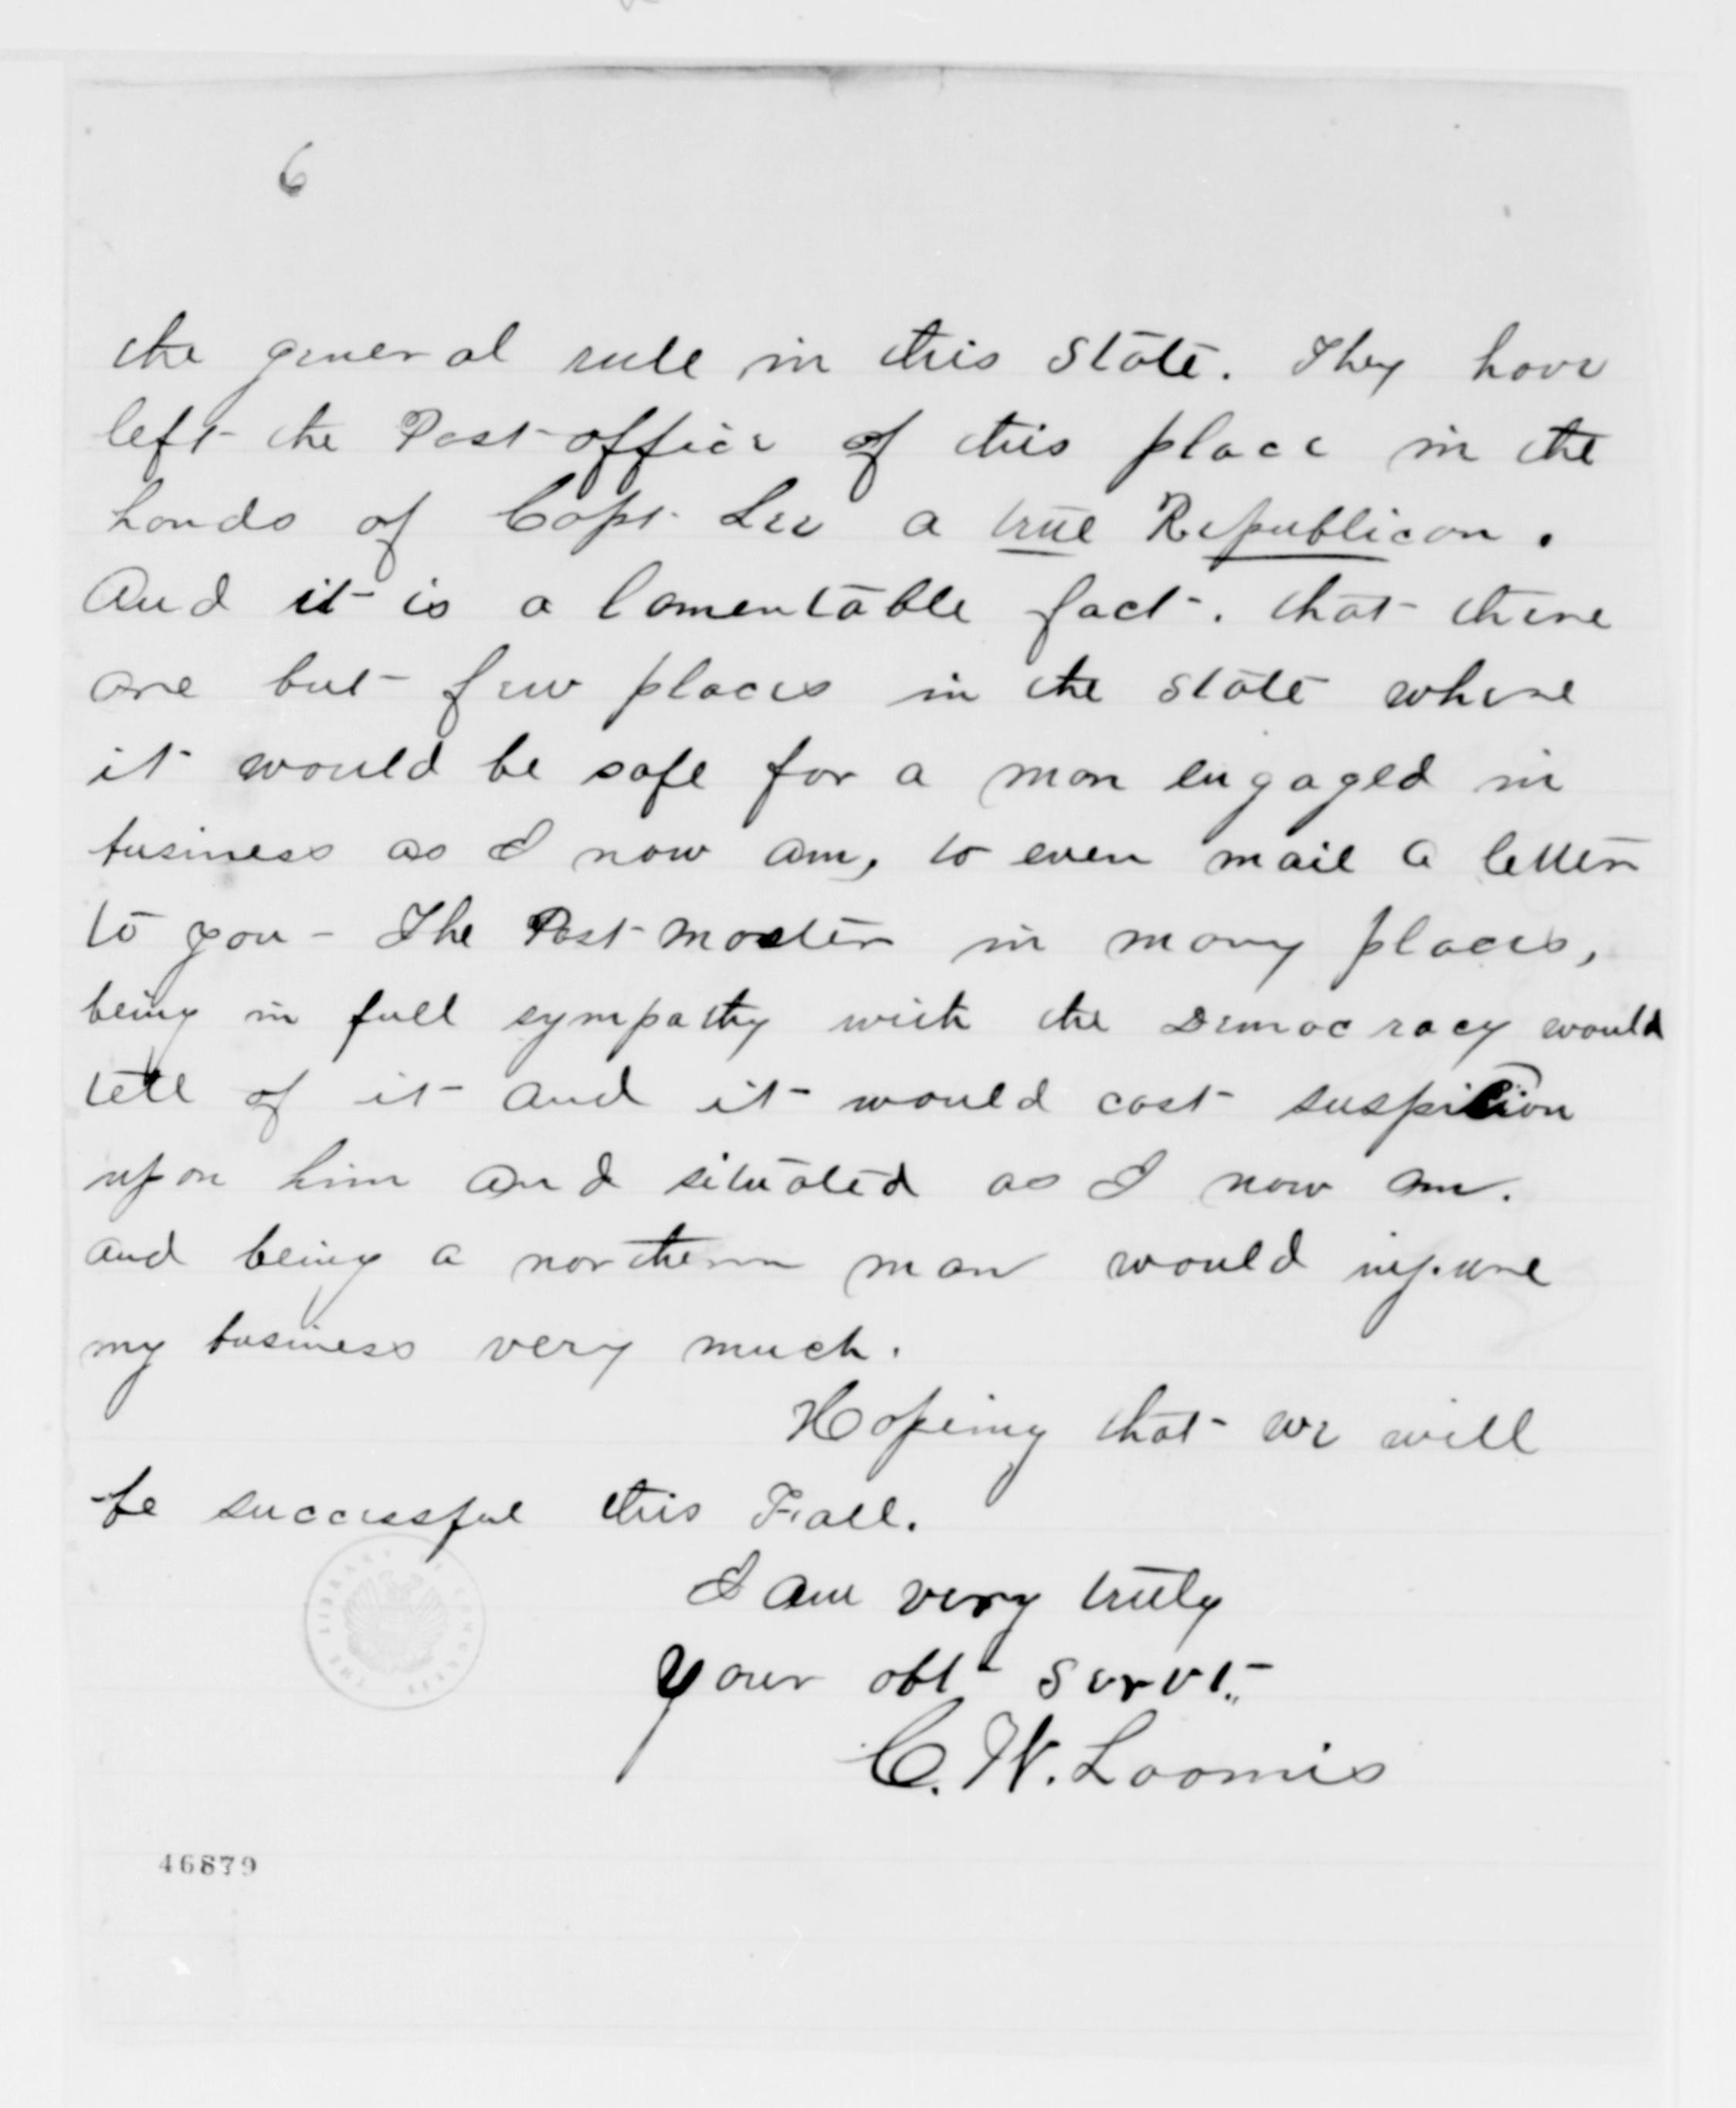 6
the general rule in this State. They have
left the Post office of this place in the
hands of Capt. Lee a true Republican.
And it is a lamentable fact. that there
are but few places in the State where
it would be safe for a man engaged in
business as I now am, to even mail a letter
to you - The Post Master in many places,
being in full sympathy with the Democracy would
tell of it and it would cast suspicion
upon him and situated as I now am.
and being a northern man would injure
my business very much.
Hopeing that we will
be successful this Fall.
I am very truly
your obt servt.
C. W. Loomis
THE LIBRARY OF CONGRESS
46879